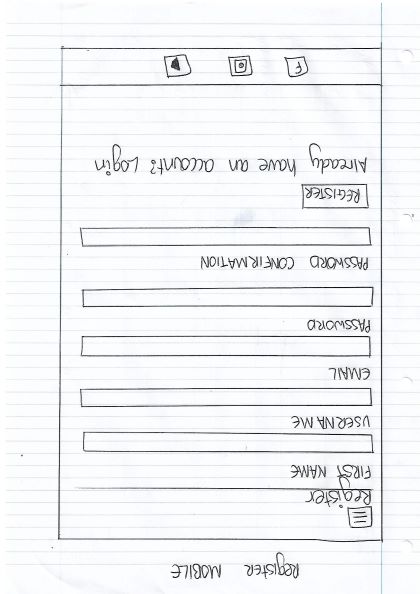 Register MOBILE
Register
FIRST NAME
USERNAME
EMAIL
PASSWORD
PASSWORD CONFIRMATION
REGISTER
Already have an account? Login
F